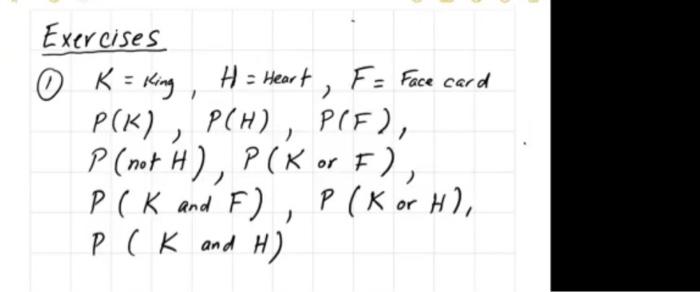 Exercises
① K = King, H = Heart, F = Face card
P(K), P(H), P(F),
P(not H), P(K or F),
P(K and F), P(K or H),
P(K and H)